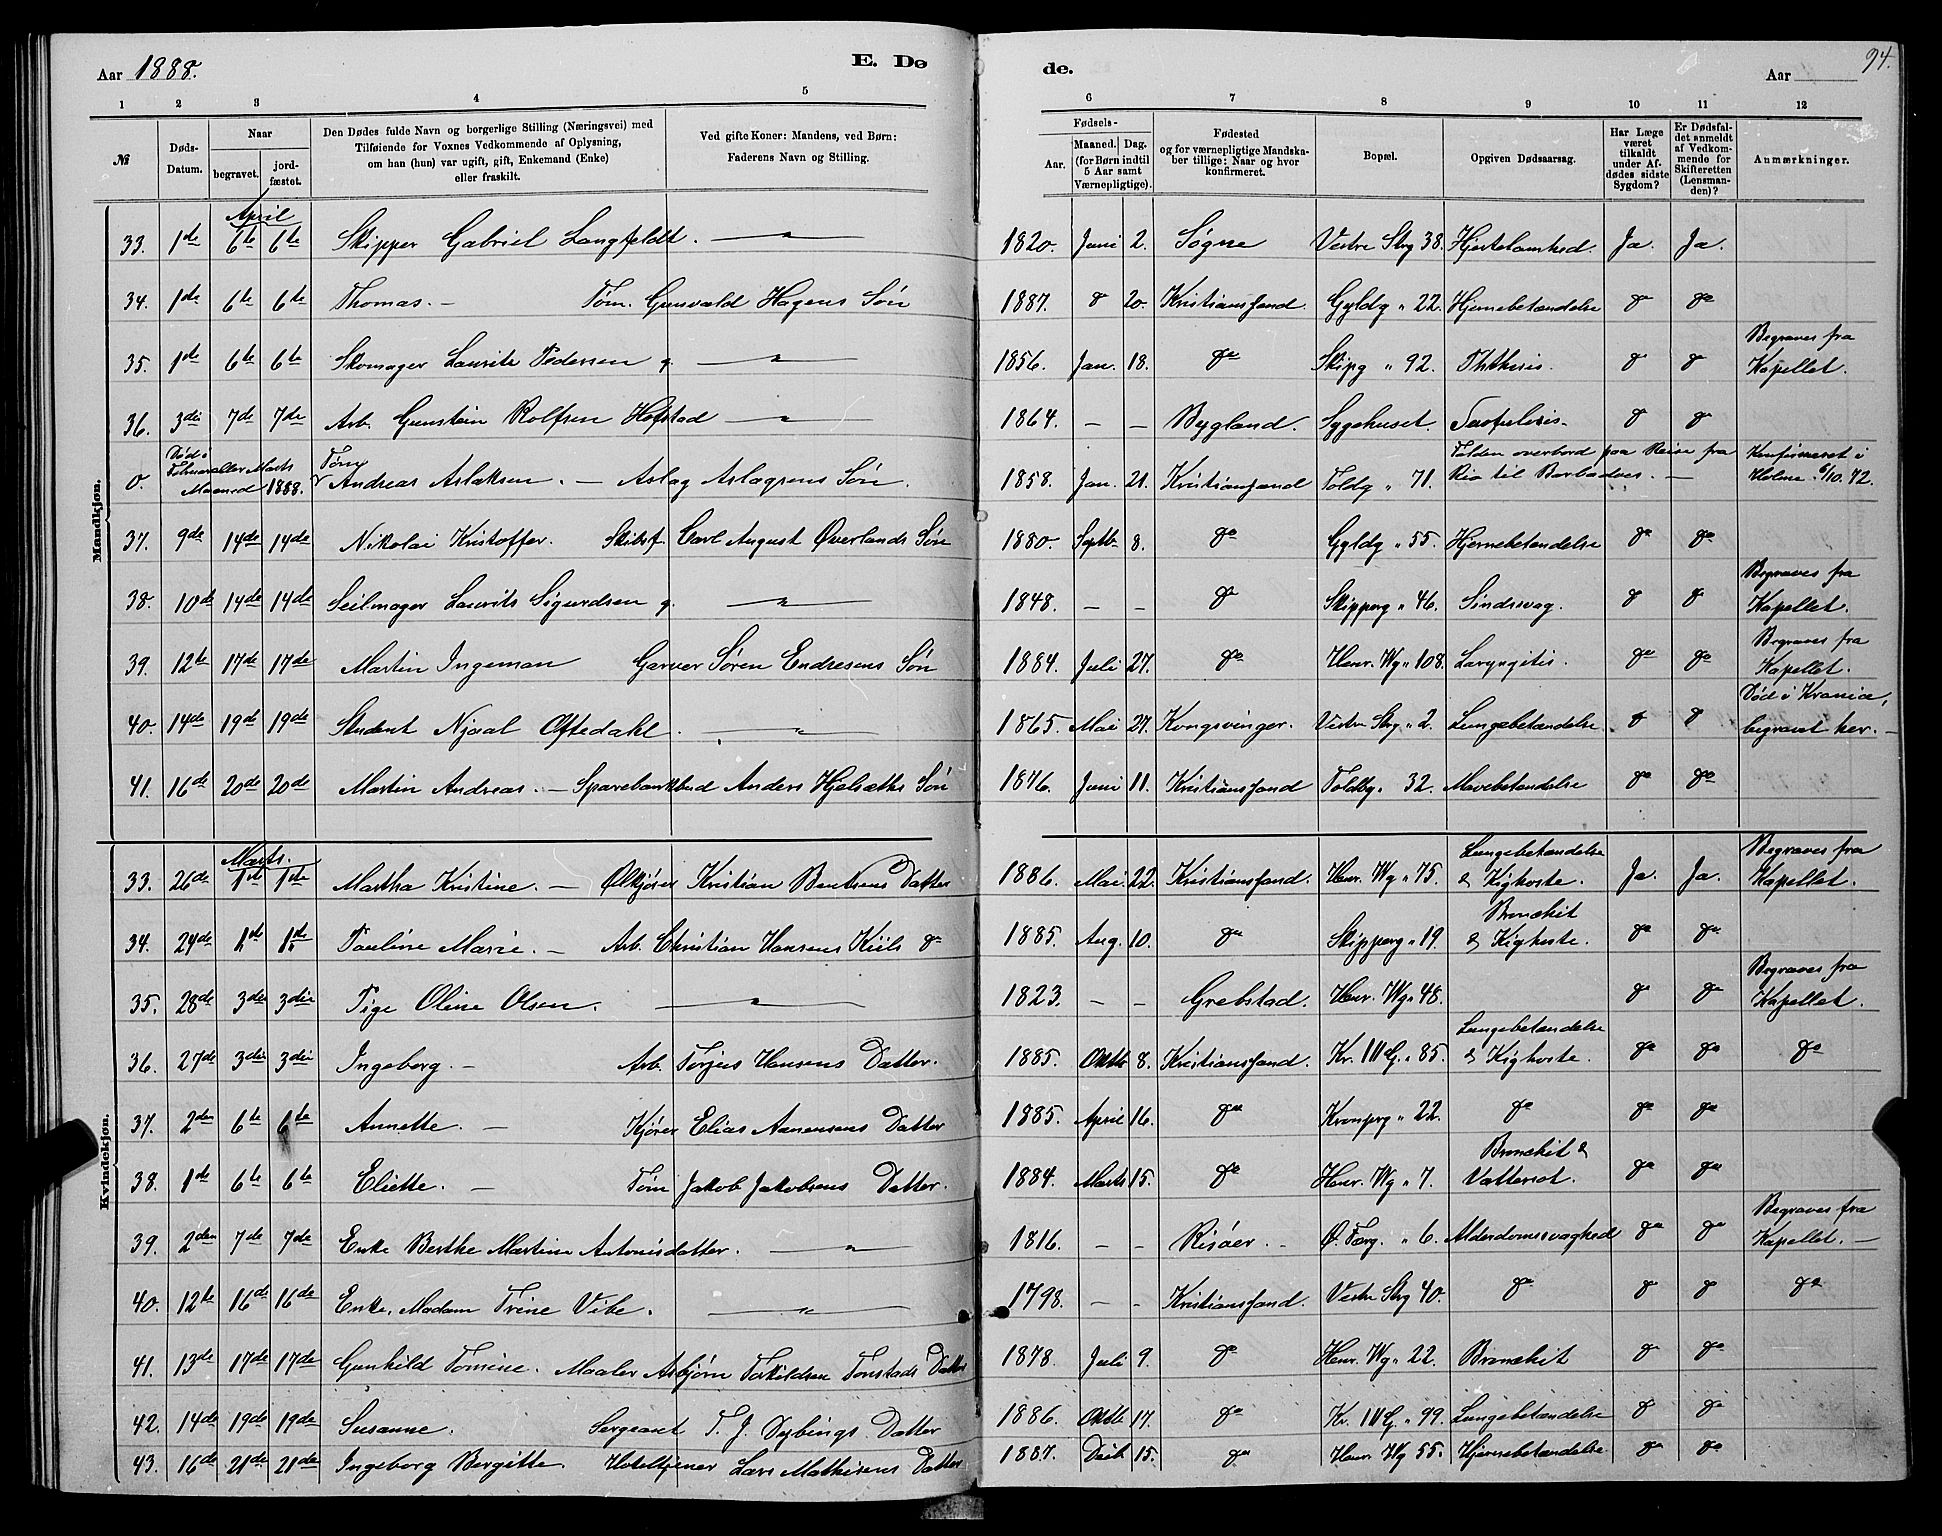 Aar 1888. E. Dø
de. Aar 94.
1 2 3 4 5
6 7 8 9 10 11 12
№ Døds-Datum. Naar begravet. jordfæstet. Den Dødes fulde Navn og borgerlige Stilling (Næringsvei) med Tilføiende for Voxnes Vedkommende af Oplysning, om han (hun) var ugift, gift, Enkemand (Enke) eller fraskilt. Ved gifte Koner: Mandens, ved Børn: Faderens Navn og Stilling.
Fødsels- Aar. Maaned. Dag. (for Børn indtil 5 Aar samt Værnepligtige). Fødested og for værnepligtige Mandskaber tillige: Naar og hvor konfirmeret. Bopæl. Opgiven Dødsaarsag. Har Læge været tilkaldt under Afdødes sidste Sygdom? Er Dødsfaldet anmeldt af Vedkommende for Skifteretten (Lensmanden)? Anmærkninger.
Mandkjøn.
April
33. 1de 6te 6te Skipper Gabriel Langfeldt. — " — 1820. Juni 2. Søgne Vestre Strg 38. Hjertelamhed. Ja. Ja.
34. 1de 6te 6te Thomas. — Tøm. Gunvald Hagens Søn 1887. do 20. Kristianssand Gyldg " 22. Hjernebetændelse do do
35. 1de 6te 6te Skomager Laurits Pedersen g. — " — 1856. Jan. 18. do Skipg " 92. Phthisis. do do Begraves fra Kapellet.
36. 3die 7de 7de Arb. Gunstein Rolfsen Hofstad — " — 1864. — — Bygland. Sygehuset. do do
0. Død i Februar eller Marts Maaned 1888. Tøm Andreas Aslaksen. — Aslag Aslagsens Søn. 1858. Jan. 21. Kristianssand Toldg " 71. Falden overbord paa Reise fra Rio til Barbadoes. — Konfirmeret i Holme 6/10.72.
37. 9de 14de 14de Nikolai Kristoffer. Skibsf. Carl August Øverlands Søn 1880. Septb. 8. do Gyldg " 55. Hjernebetændelse do do
38. 10de 14de 14de Seilmager Laurits Sigurdsen g. — " — 1848. — — do Skipperg " 46. Sindssvag. do do Begraves fra Kapellet.
39. 12te 17de 17de Martin Ingeman Garver Søren Endresens Søn 1884. Juli 27. do Henr. Wg " 108. Laryngitis. do do Begraves fra Kapellet.
40. 14de 19de 19de Student Njaal Oftedahl. — " — 1865. Mai 27. Kongsvinger. Vestre Strg " 2. Lungebetændelse do do Død i Krania, begravet her. —
41. 16de 20de 20de Martin Andreas. — Sparebankbud Anders Hjelsæths Søn 1876. Juni 11. Kristianssand Toldbg. 32. Mavebetændelse do do
Kvindekjøn.
Marts.
33. 26de 1ste 1ste Martha Kristine. — Ølkjører Kristian Bentsens Datter 1886. Mai 22. Kristianssand. Henr. Wg " 75. Lungebetændelse & Kighoste. Ja. Ja. Begraves fra Kapellet.
34. 24de 1ste 1ste Pauline Marie. — Arb. Christian Hansens Kiils do 1885. Aug. 10. do Skipperg " 19. Bronchit & Kighoste. do do
35. 28de 3die 3die Pige Oline Olsen. — " — 1823. — — Grebstad. Henr. Wg " 48. do do Begraves fra Kapellet.
36. 27de 3die 3die Ingeborg. — Arb. Torjus Hansens Datter. 1885. Oktb 8. Kristianssand. Kr. IV G. " 85. Lungebetændelse & Kighoste. do do do
37. 2den 6te 6te Annette. — Kjører Elias Aanensens Datter 1885. April 16. do Kronprg " 22. do do do
38. 1de 6te 6te Eliette. — Tøm Jakob Jakobsens Datter. 1884. Marts 15. do Henr. Wg " 7. Bronchit & Vattersot. do do
39. 2den 7de 7de Enke Berthe Martine Antonisdatter. — " — 1816. — — Risøer. — Ø. Torg. " 6. Alderdomssvaghed do do Begraves fra Kapellet. —
40. 12te 16de 16de Enke, Madam Trine Vibe. — " — 1798. — — Kristianssand. Vestre Strg 40. do do do do
41. 13de 17de 17de Gunhild Tomine. Maaler Asbjørn Torkildsen Tonstads Datter 1878. Juli 9. do Henr. Wg " 22. Bronchit do do
42. 14de 19de 19de Susanne. Sergeant T. J. Dybings Datter 1886. Oktb 17. do Kr. IV G. " 99. Lungebetændelse do do
43. 16de 21de 21de Ingeborg Bergitte. Hoteltjener Lars Mathisens Datter 1887. Decb 15. do Henr. Wg 55. Hjernebetændelse do do